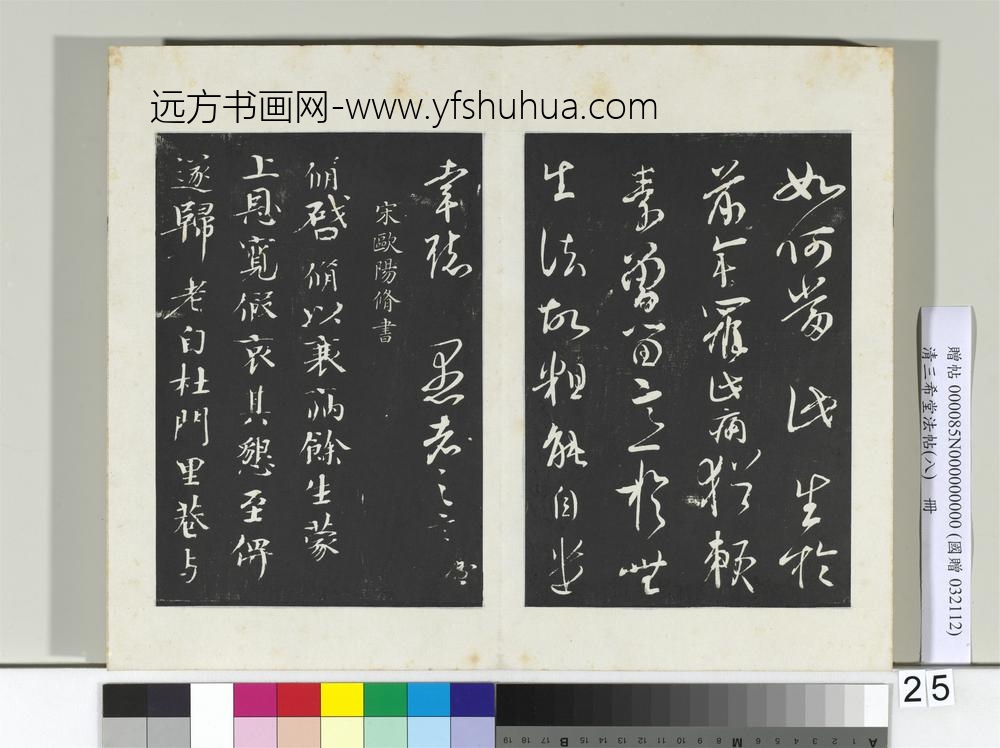 远方书画网-www.yfshuhua.com
如何 此生於
前年罹此病猶賴
素曾留意於
生法故粗能自
幸聽 愚者之言
宋歐陽脩書
脩啓脩以衰病餘生蒙
上恩寬假哀其懇至俾
遂歸老自杜門里巷与
贈帖 000085N000000000 (國贈 032112)
清三希堂法帖(八) 冊
25